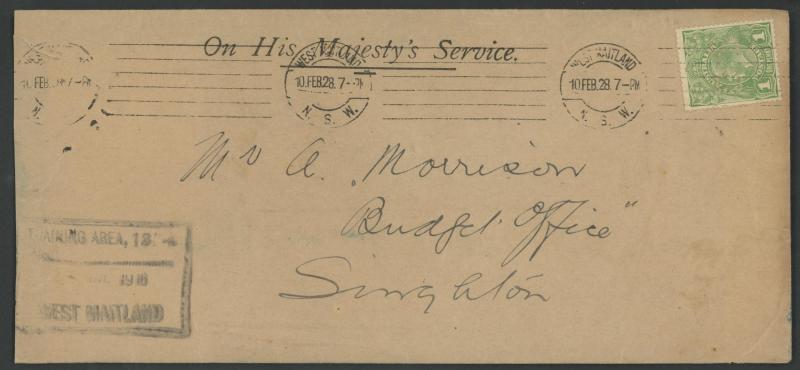 On His Majesty's Service.
WEST MAITLAND
10.FEB.28.7-PM
N. S. W.
WEST MAITLAND
10.FEB.28.7-PM
N. S. W.
FEB 7-PM
1 1
Mr A. Morrison
Budget Office"
Singleton
TRAINING AREA,
1916
WEST MAITLAND